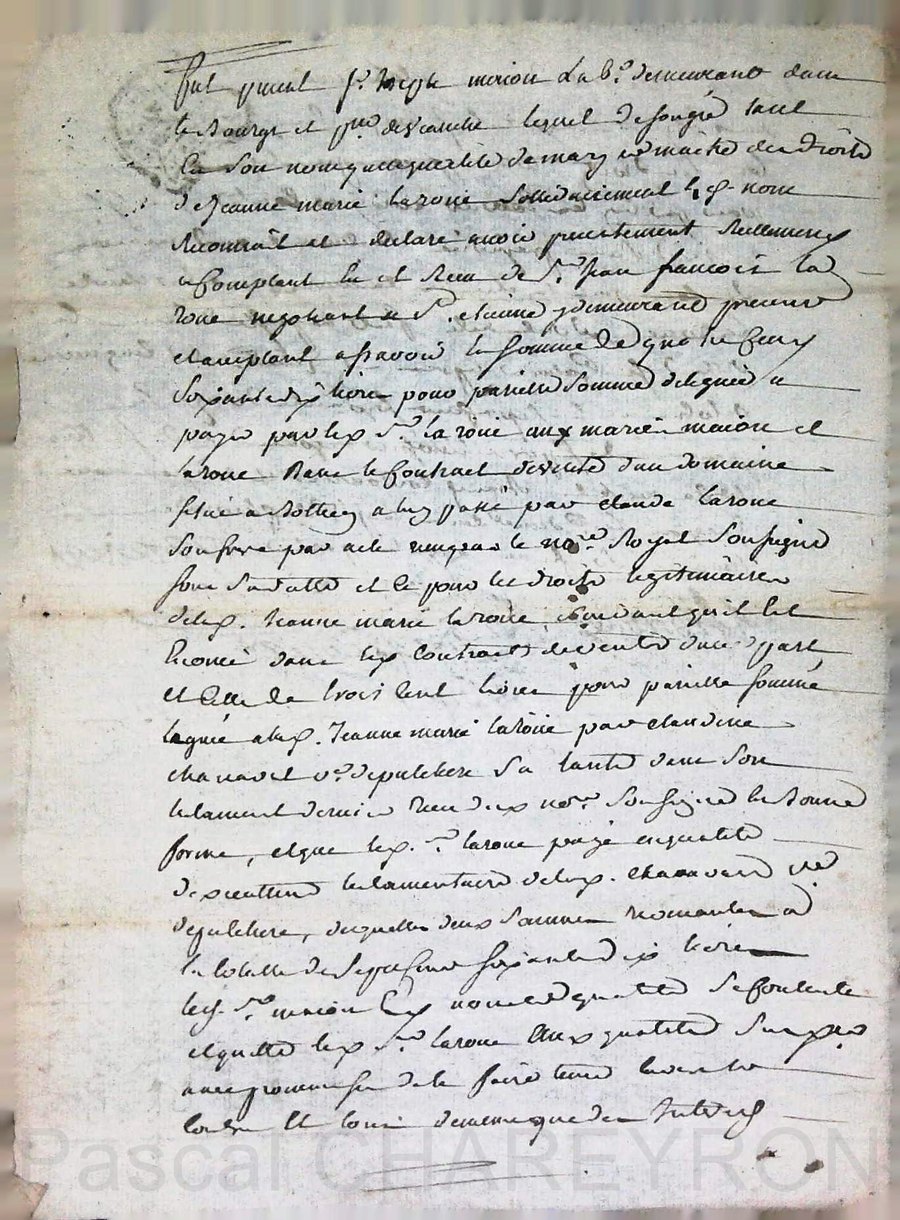 fut present Sr. Joseph merion Lab.r demeurant dans
le Bourg et psse lequel de son gré tant
en son nom qu'en qualité de mary et maitre des Droits
de Jeanne marie Laroüe solidairement nom
Reconnait et declare avoir presentement Reellement
et Comptant eu et Receu de Sr. Jean francois La
roue negotiant a St. etienne y demeurant present
et acceptant assavoir la somme de quatre Cens
soixante dix livres pour pareille somme deleguée a
payer par led. Sr. laroüe aux mariés merion et
laroue Dans le Contract de vente d'un domaine
situé a a luy passé par claude Laroue
son frere par acte Reçeu le nore. Royal soussigné
sous sa datte et ce pour les droits legitimaires
de lad. Jeanne marie laroüe, quil est
enoncé dans led. Contract de vente d'une part
et celle de trois cent livres pour pareille somme
leguée a lad. Jeanne marie laroüe par claudine
chanavat ve. depulchere sa tante dans son
testament dernier Receu dud. nore. soussigné en Bonne
forme, et que led. Sr. laroue paye en qualité
d'executeur testamentaire de lad. chanavat ve.
depulchere, desquelles deux sommes Revenantes a
la totalle de sept Cens soixante dix livres
led. Sr. merion Esd. noms et qualités se Contente
et quitte led. Sr. laroue Auxd. qualités
avec promesse de le faire tenir quitte
envers et Contre tous de meme que des Interets
Pascal CHAREYRON